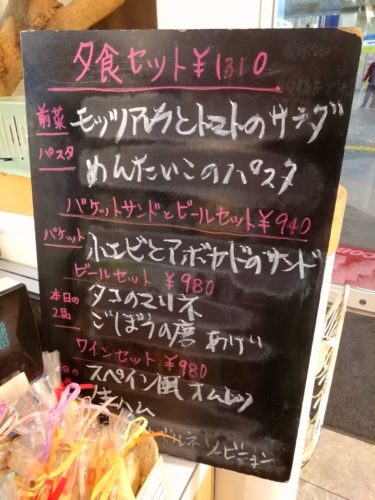 夕食セット ¥1310
前菜 モッツアレラとトマトのサラダ
パスタ めんたいこのパスタ
バケットサンドとビールセット ¥940
バケット 小エビとアボカドのサンド
ビールセット ¥980
本日の2品 タコのマリネ
ごぼうの唐あげ
ワインセット ¥980
スペイン風オムレツ
生ハム